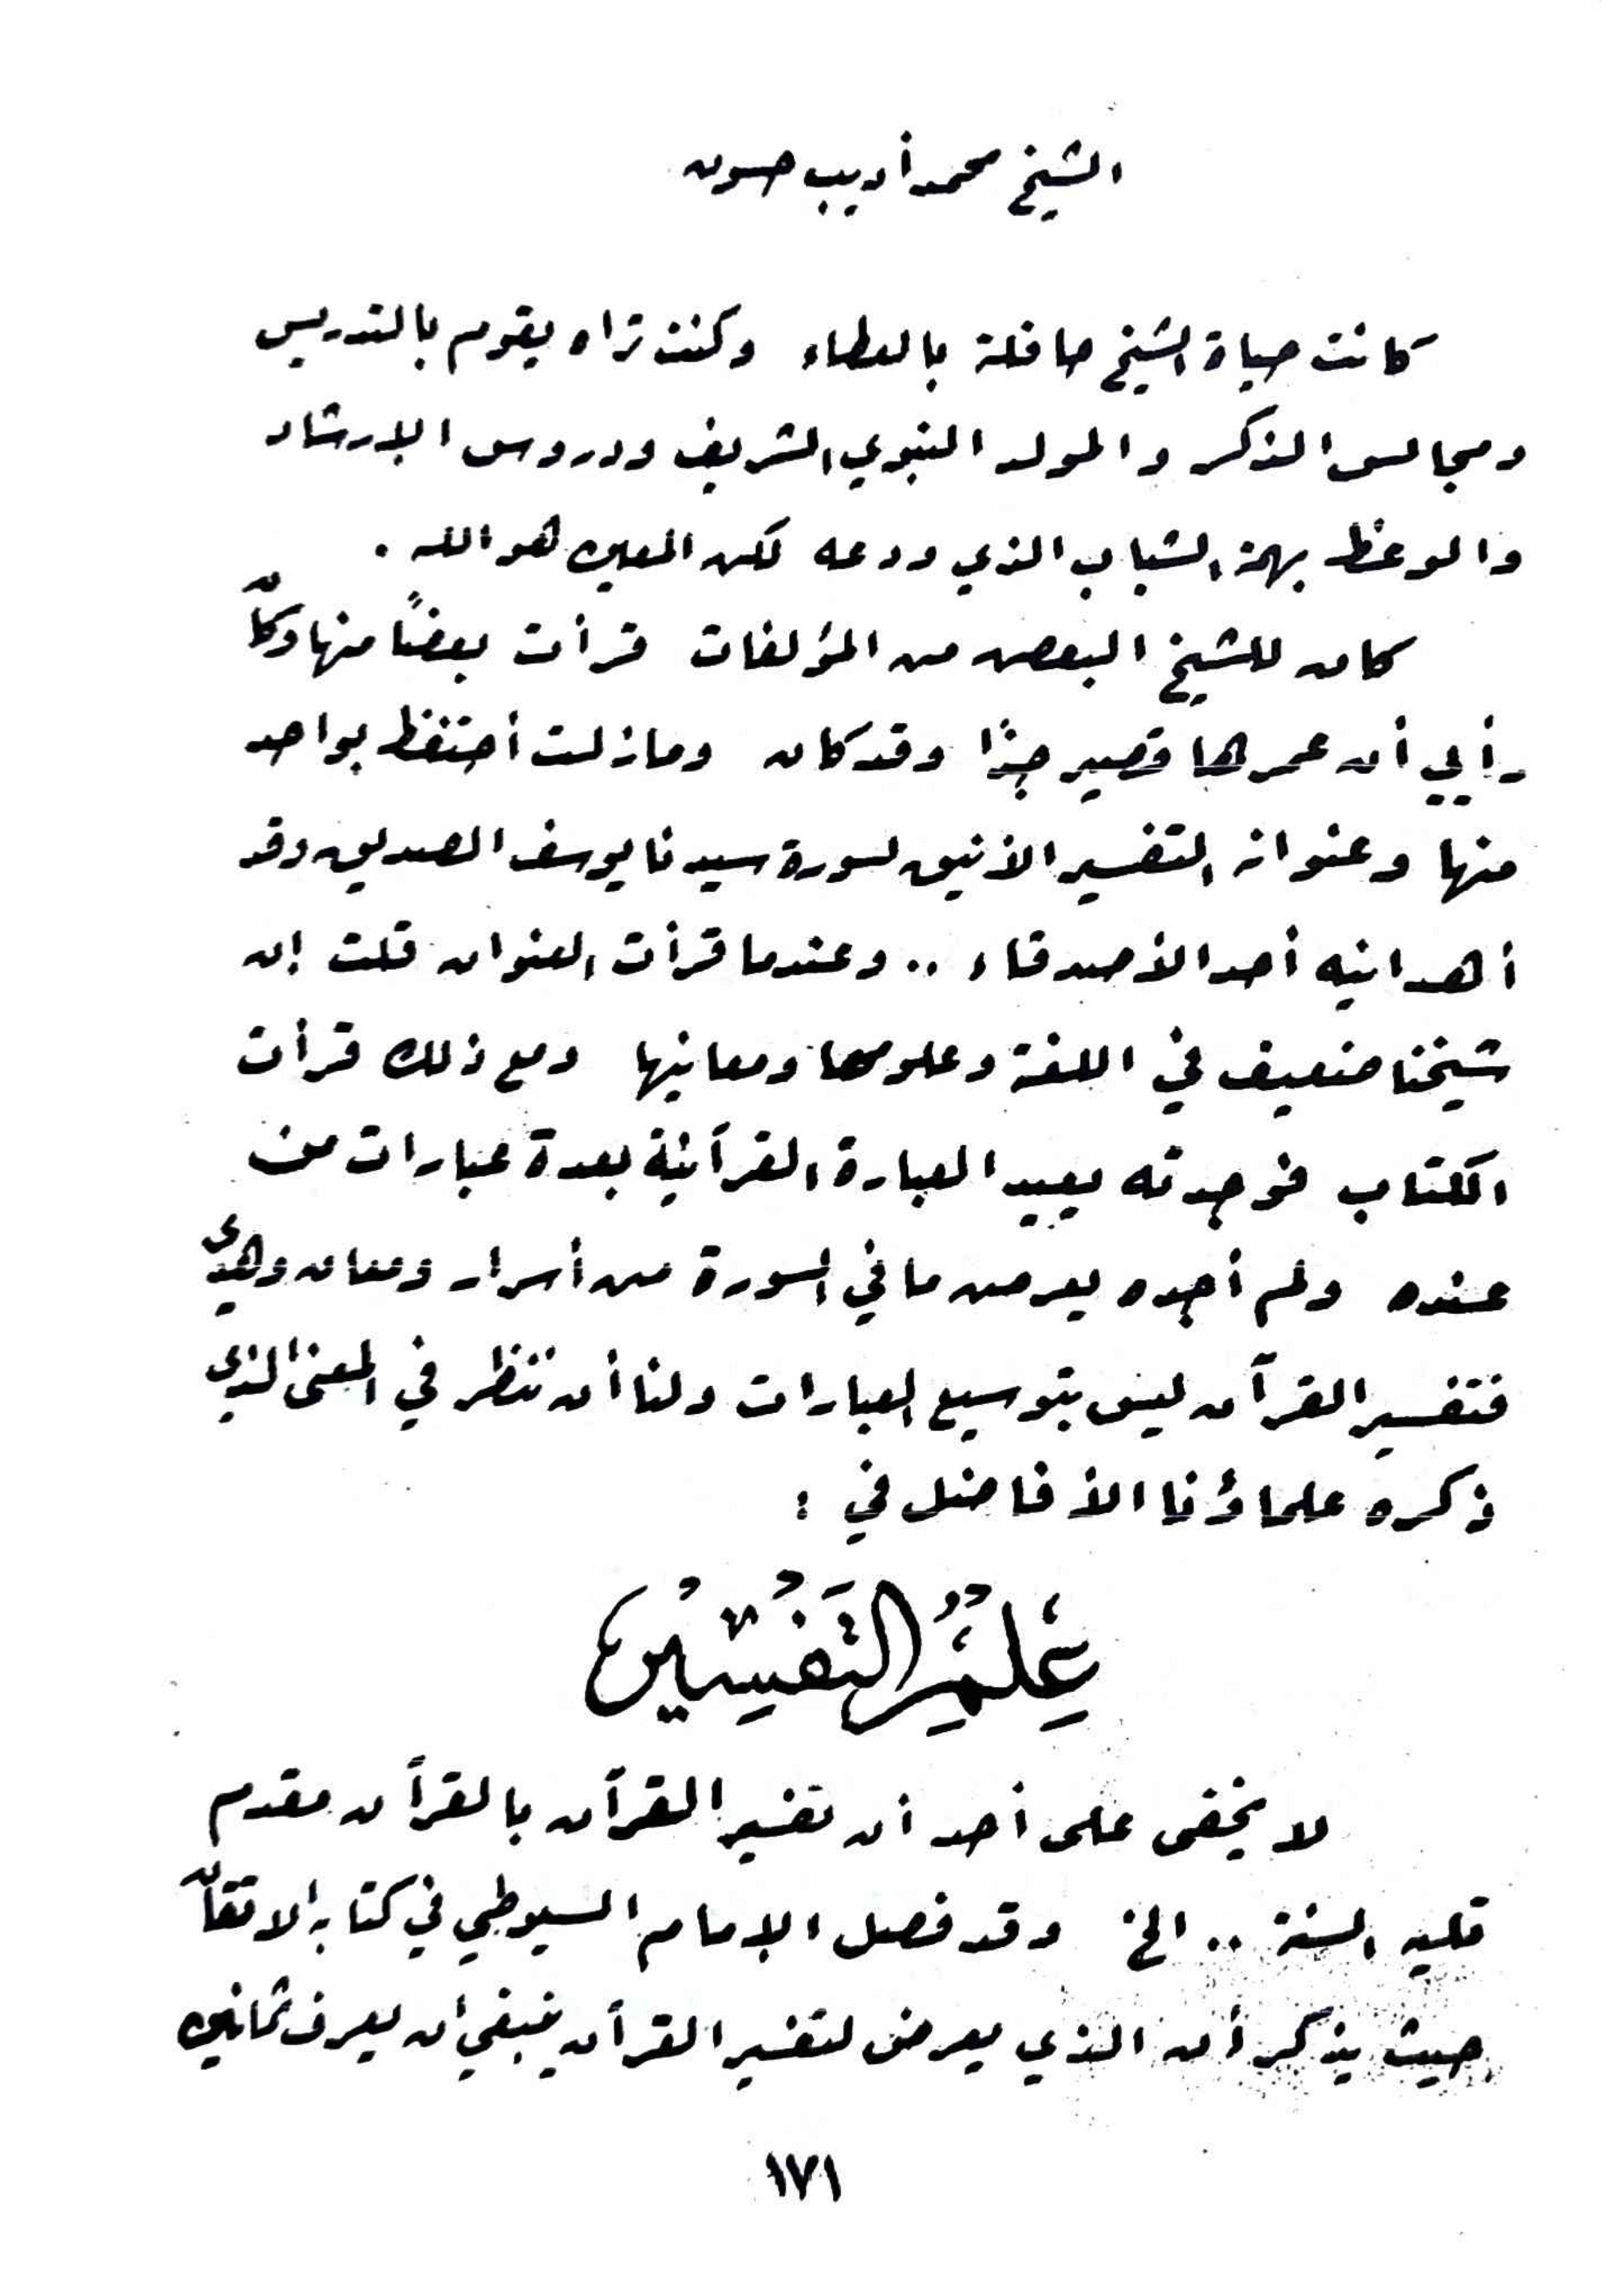 الشيخ محمد أديب حسون
كانت حياة الشيخ حافلة بالعطاء وكنت تراه يقوم بالتدريس
ومجالس الذكر والمولد النبوي الشريف ودروس الإرشاد
والوعظ بهذا الشباب الذي ودعه لكن المعين هو الله .
كان للشيخ البعض من المؤلفات قرأت بعضًا منها وكان
رأيي أن عمرها قصير جدًا وقد كان ومازلت أحتفظ بواحد
منها وعنوانه التفسير الأنيق لسورة سيدنا يوسف الصديق وقد
أهدانيه أحد الأصدقاء .. وعندما قرأت العنوان قلت إن
شيخنا ضعيف في اللغة وعلومها ومعانيها ومع ذلك قرأت
الكتاب فوجدته يعيد العبارة القرآنية بعدة عبارات من
عنده ولم أجده يعرض ما في السورة من أسرار ومعان وهدي
فتفسير القرآن ليس بتوسيع العبارات ولنا أن ننظر في المعنى الذي
ذكره علماؤنا الأفاضل في :
عِلْمُ التَفْسِيْر
لا يخفى على أحد أن تفسير القرآن بالقرآن مقدم
تليه السنة .. الخ وقد فصل الإمام السيوطي في كتابه الاتقان
حيث يذكر أن الذي يعرض لتفسير القرآن ينبغي أن يعرف ثمانين
١٧١